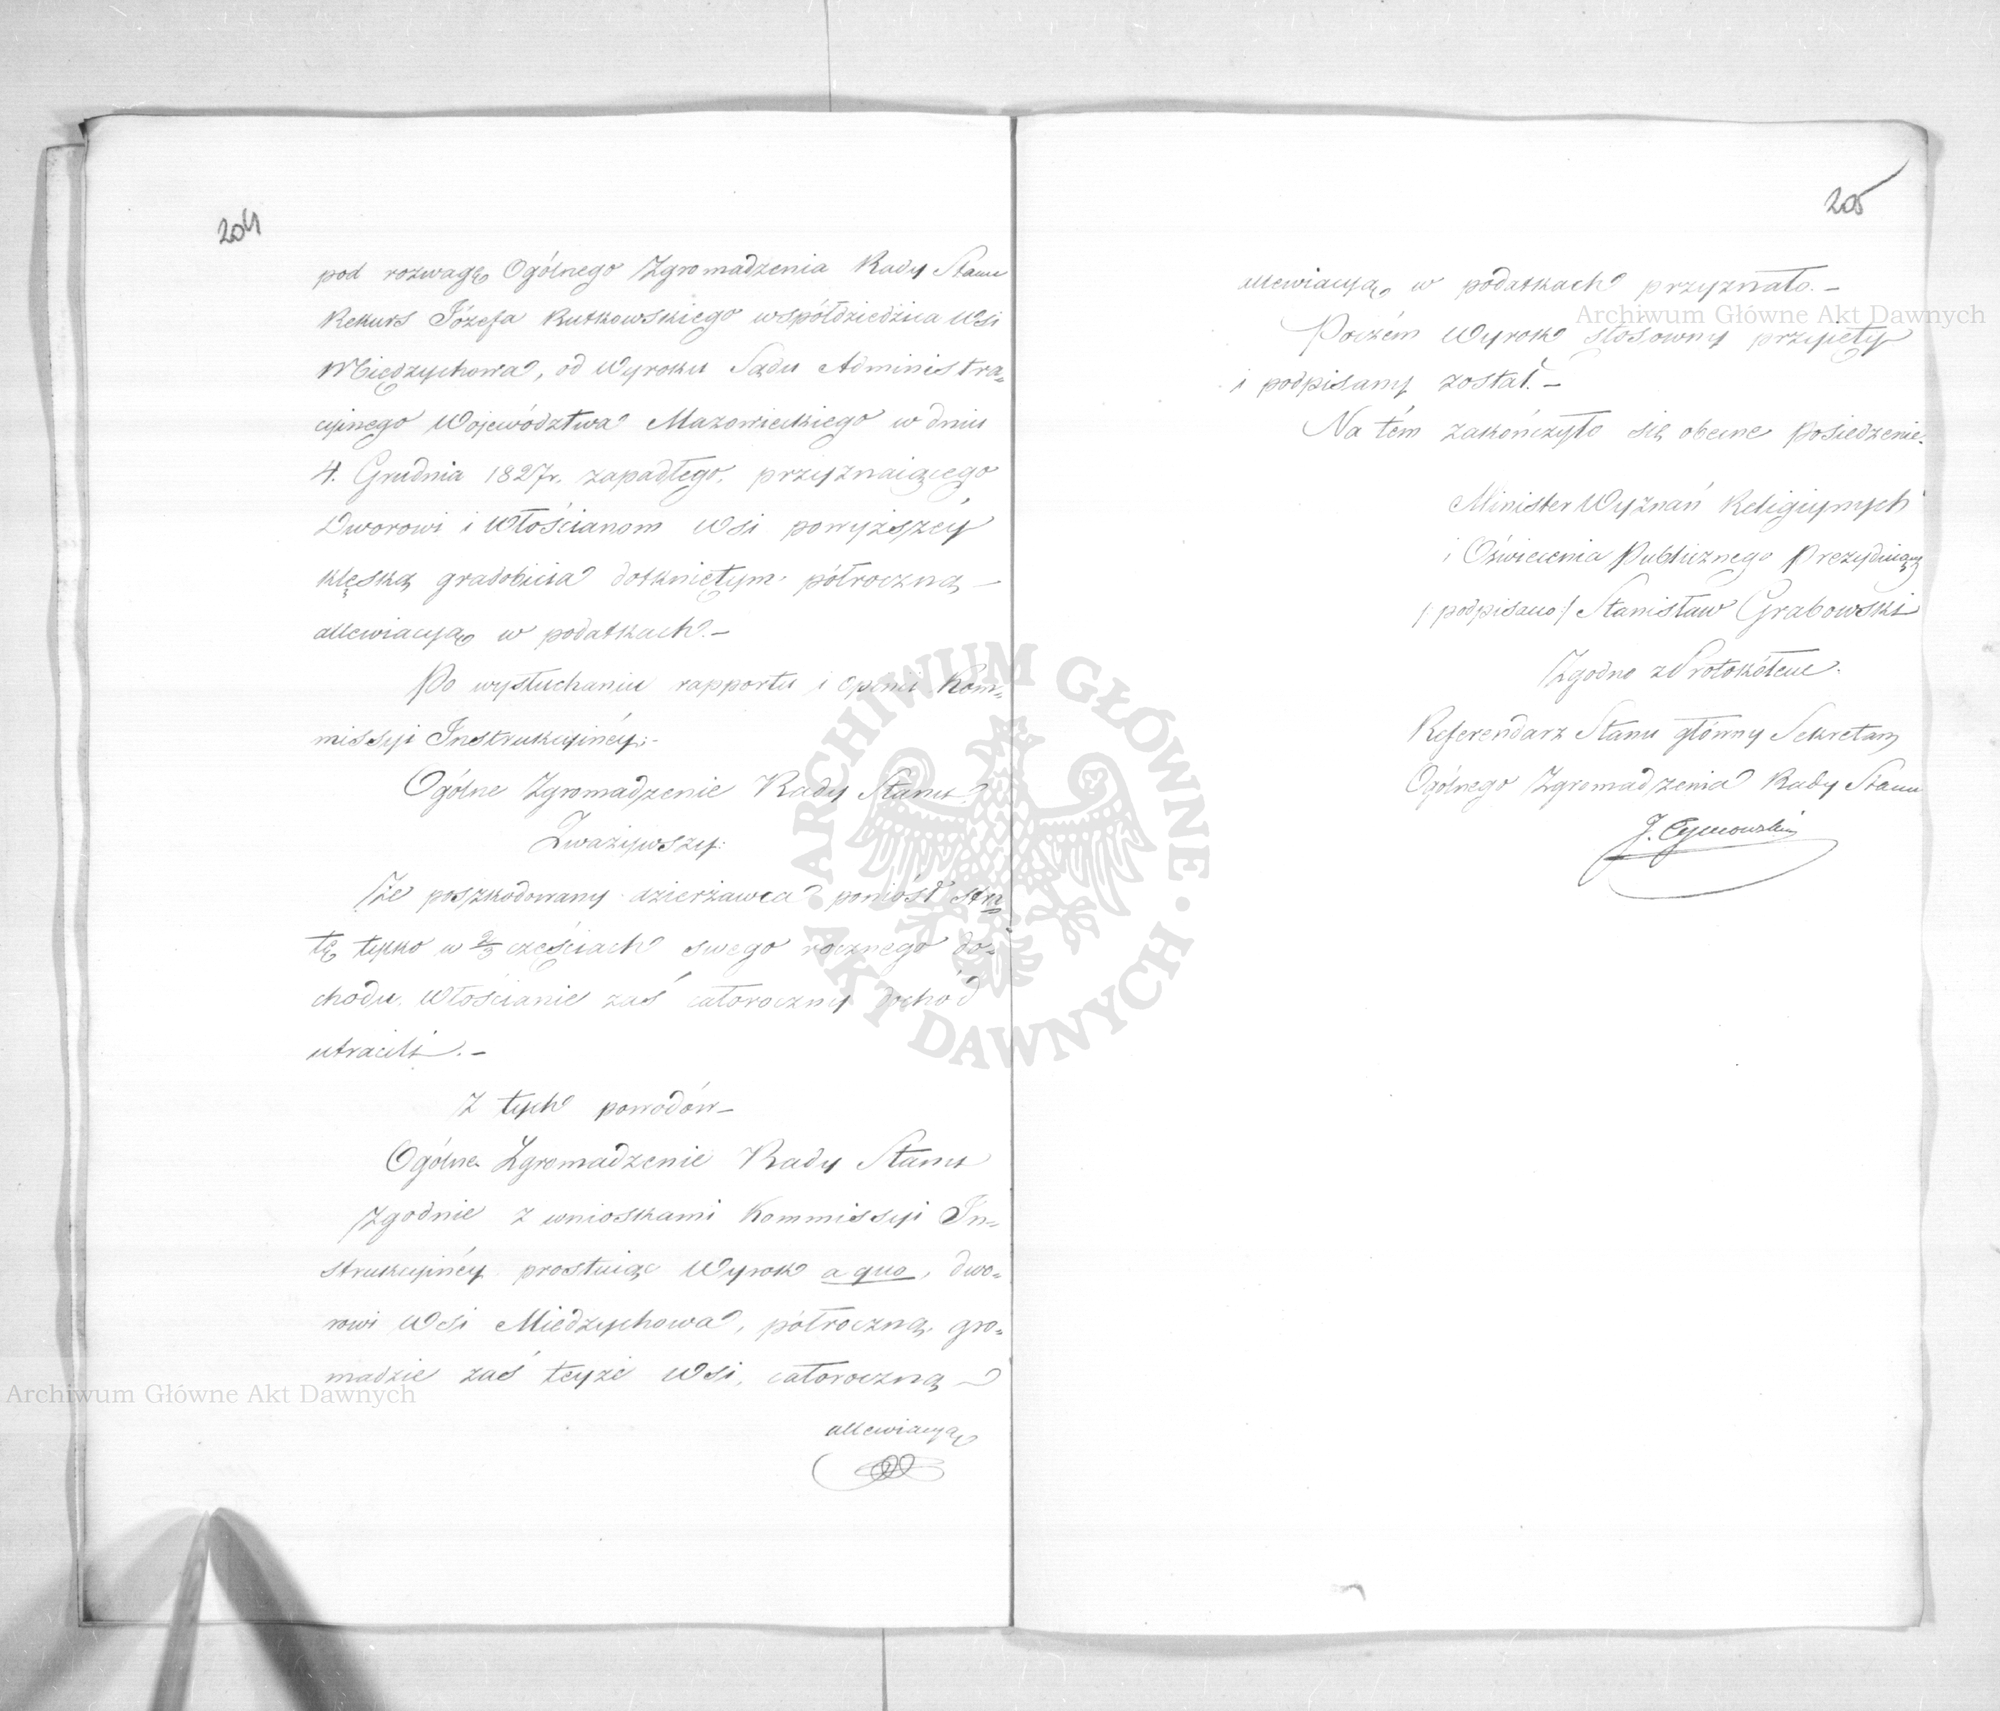 204
pod rozwagę Ogólnego Zgromadzenia Rady Stanu
Rekurs Józefa Rutkowskiego współdziedzica Wsi
Miedzychowa, od Wyroku Sądu Administra-
cyinego Województwa Mazowieckiego w dniu
4. Grudnia 1827r. zapadłego, przyznaiącego
Dworowi i Włościanom Wsi powyższéy
klęską gradobicia dotkniętym półroczną –
allewiacyą w podatkach. –
Po wysłuchaniu rapportu i opinii Kom-
missyi Instrukcyinéy: –
Ogólne Zgromadzenie Rady Stanu
Zważywszy:
Że poszkodowany dzierżawca poniósł stra-
tę tylko w 2/3 częściach swego rocznego do-
chodu. Włościanie zaś całoroczny dochód
utracili. –
Z tych powodów –
Ogólne Zgromadzenie Rady Stanu
Zgodnie z wnioskami Kommissyi In-
strukcyinéy prostuiąc Wyrok a quo, dwo-
rowi Wsi Miedzychowa, półroczną, gro-
madzie zaś teyże Wsi, całoroczną –
allewiacyą
205
allewiacyą w podatkach przyznało. –
Poczém Wyrok stosowny przyięty
i podpisany został. –
Na tém zakończyło się obecne Posiedzenie.
Minister Wyznań Religiynych
i Oświecenia Publicznego Prezyduiący
/:podpisano:/ Stanisław Grabowski
Zgodno z Protokółem.
Referendarz Stanu główny Sekretarz
Ogólnego Zgromadzenia Rady Stanu
J.
Archiwum Główne Akt Dawnych
Archiwum Główne Akt Dawnych
ARCHIWUM GŁÓWNE · AKT DAWNYCH ·